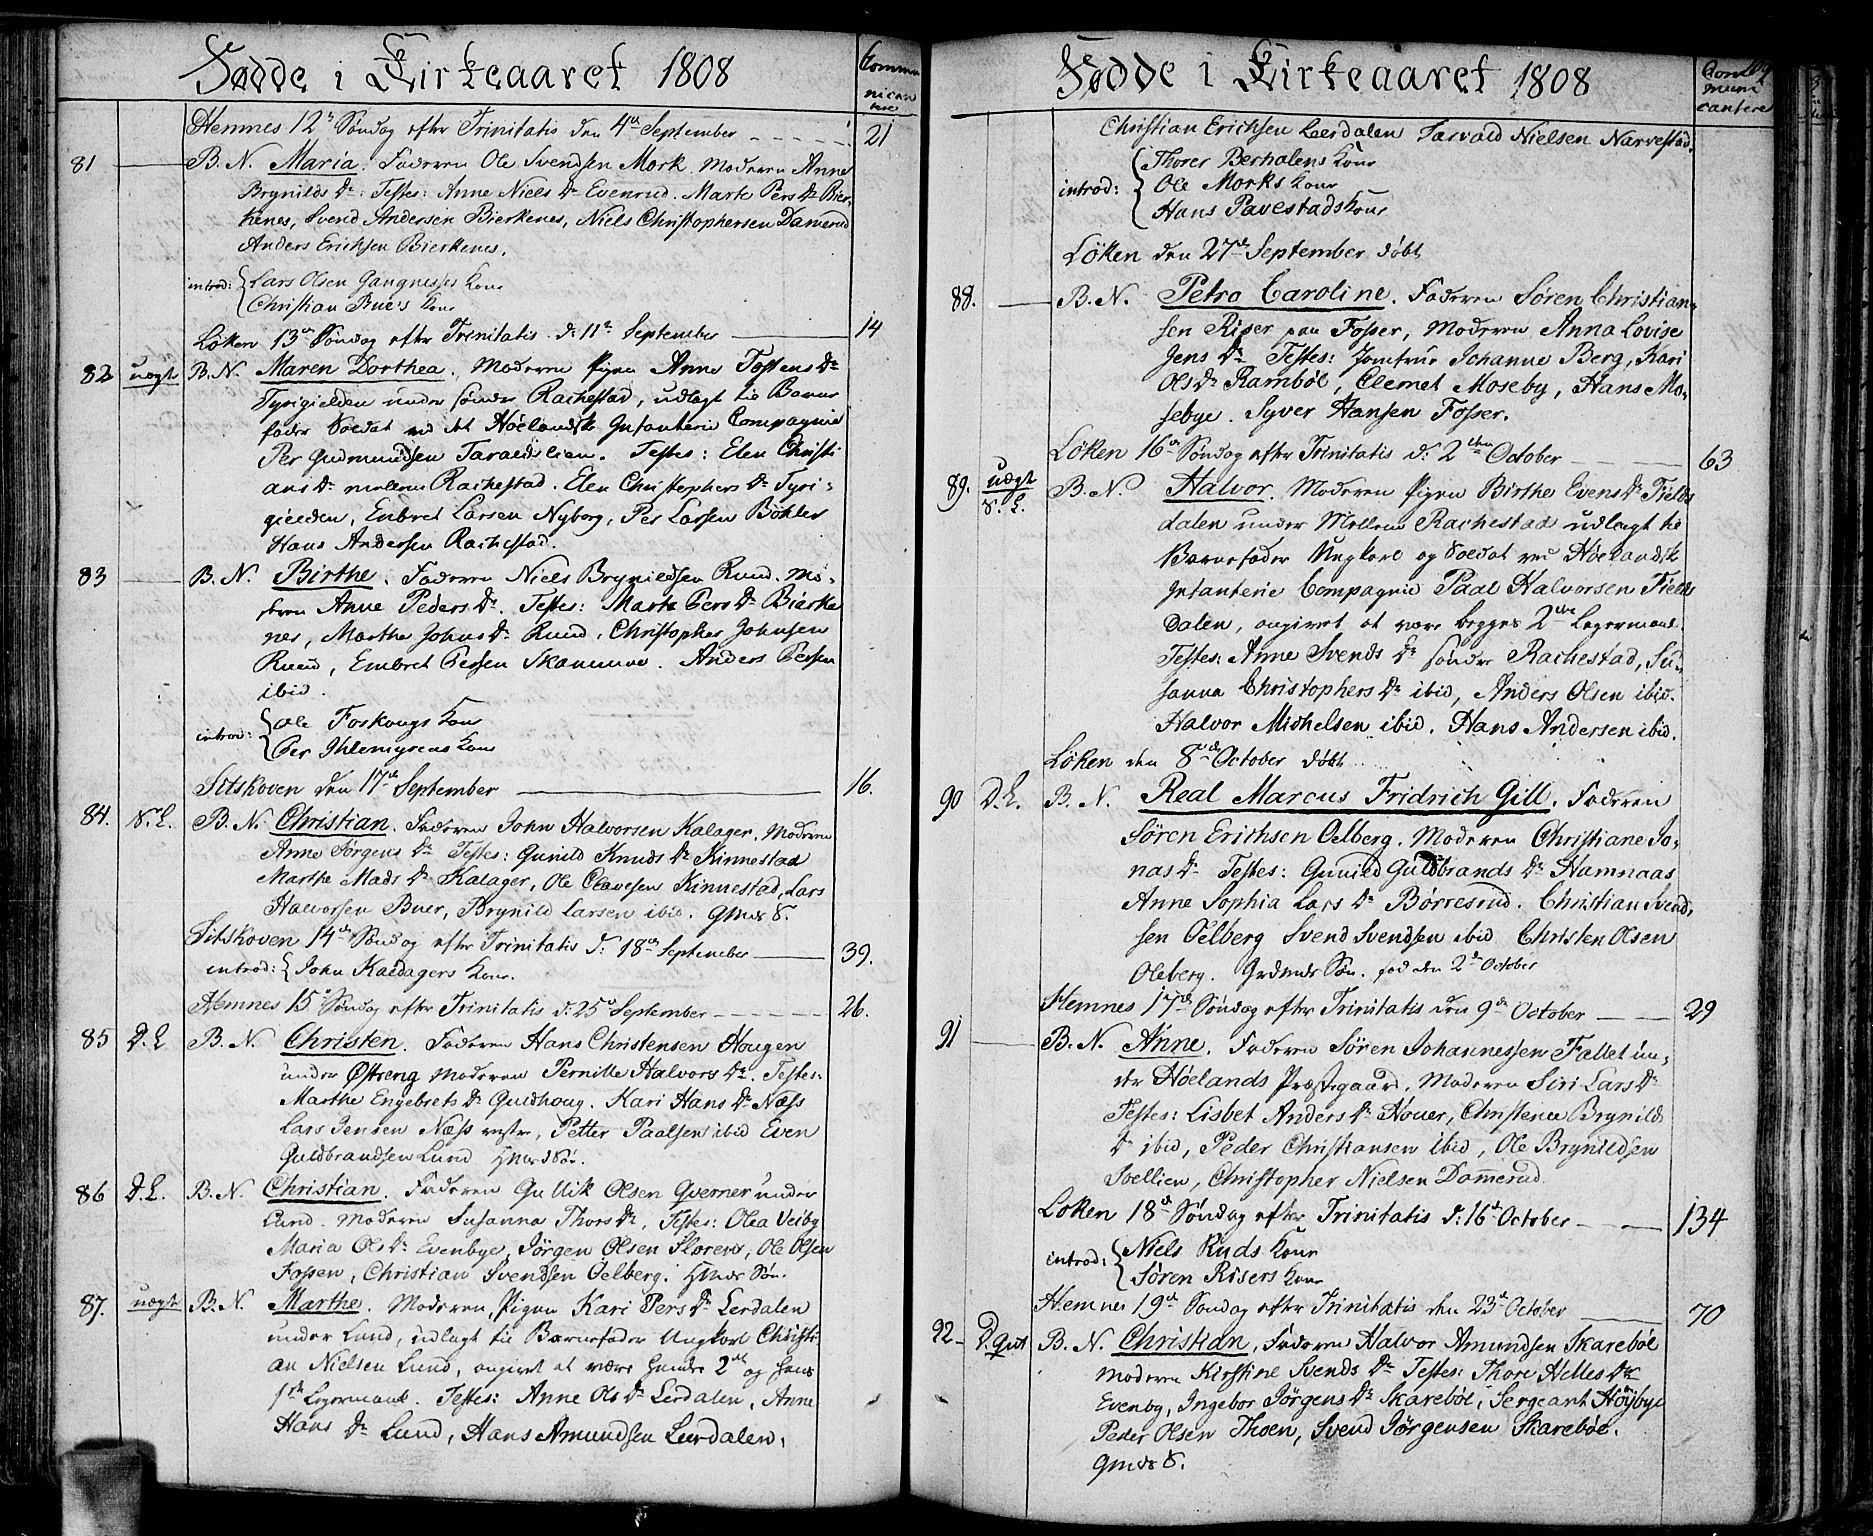 Fødde i Kirkeaaret 1808
Commu
nican
tere
Hemnes 12te Søndag efter Trinitatis den 4de September 21
81 B. N. Maria. Faderen Ole Svendsen Mork. Moderen Anne
Brynilds Dr. Testes: Anne Niels Dr Evenrud. Marte Pers Dr Bier
kenes, Svend Andersen Bierkenes, Niels Christophersen Damerud
Anders Erichsen Bierkenes.
introd: Lars Olsen Gangnesses Kone
Christian Bue's Kone
Løken 13de Søndag efter Trinitatis d: 11te September 14
82 uægte B. N. Maren Dorthea. Moderen Pigen Anne Tostens Dr
Tyrigielden under søndre Rachestad, udlagt til Barne
fader Soldat ved det Høelandske Infanterie Compagnie
Per Gudmundsen Taraldslien. Testes: Elen Christi
ans Dr mellem Rachestad. Elen Christophers Dr Tyri-
gielden, Enbret Larsen Nyborg, Per Larsen Bøhler
Hans Andersen Rachestad.
83 B. N. Birthe. Faderen Niels Brynildsen Ruud. Mo-
deren Anne Peders Dr. Testes: Marte Pers Dr Bierke
nes, Marthe Johns Dr Ruud, Christopher Johnsen
Ruud, Embret Persen Skannum. Anders Persen
ibid.
introd: Ole Foskougs Kone
Per Ihlemyrens Kone
Sitskoven den 17de September 16.
84. N. L. B. N. Christian. Faderen John Halvorsen Kalager. Moderen
Anne Jørgens Dr Testes: Gunild Knuds Dr Kinnestad
Marthe Mads Dr Kalager, Ole Olavesen Kinnestad, Lars
Halvorsen Buer, Brynild Larsen ibid. Gmds S.
Sitskoven 14de Søndag efter Trinitatis d. 18de September 39.
introd: John Kaldagers Kone.
Hemnes 15de Søndag efter Trinitatis d: 25de September 26.
85 D. L B. N. Christen. Faderen Hans Christensen Hougen
under Østreng Moderen Pernille Halvors Dr. Testes:
Marthe Engebrets Dr Guldhoug. Kari Hans Dr Næss
Lars Jensen Næss vestre, Petter Paalsen ibid Even
Guldbrandsen Lund Hmds Søn.
86 D. L. B. N. Christian. Faderen Gullik Olsen Qverner under
Lund. Moderen Susanna Thors Dr, Testes: Olea Veiby
Maria Ols Dr Evenbye, Jørgen Olsen Floren, Ole Olsen
Fossen, Christian Svendsen Oelberg. Hmds Søn.
87. uægte B. N. Marthe. Moderen, Pigen Kari Pers Dr Lerdalen
under Lund, udlagt til Barnefader Ungkarl Christi-
an Nielsen Lund, angivet at være hendes 2det og hans
1ste Legermaal. Testes: Anne Ols Dr Lerdalen, Anne
Hans Dr Lund, Hans Amundsen Lerdalen,
Fødde i Kirkeaaret 1808
Com
muni
cantere
Christian Erichsen Leerdalen Tarvald Nielsen Narvestad.
introd: Thorer Berhalens Kone
Ole Morks Kone
Hans Pavestads Kone
Løken den 27de September døbt
88. B. N. Petro Caroline. Faderen Søren Christian-
sen Riser paa Fosser, Moderen Anna Lovise
Jens Dr Testes: Jomfrue Johanne Berg, Kari
Ols Dr Rambøl, Clemet Moseby, Hans Mo-
sebye. Syver Hansen Fosser.
Løken 16de Søndag efter Trinitatis d: 2den October 63
89. uægte N. L. B. N. Halvor. Moderen Pigen Birthe Evens Dr Field
dalen under Mellem Rachestad udlagt til
Barnefader Ungkarl og Soldat ved Høelandske
Infanterie Compagnie Paal Halvorsen Field
dalen, angivet at være begges 2det Legermaal.
Testes: Anne Svends Dr søndre Rachestad, Su-
sanna Christophers Dr ibid, Anders Olsen ibid.
Halvor Michelsen ibid. Hans Andersen ibid.
Løken den 8de October døbt
90 D. L. B. N. Real Marcus Fridrich Gill. Faderen
Søren Erichsen Oelberg. Moderen Christiane Jo-
nas Dr Testes: Gunild Guldbrands Dr Hamnaas
Anne Sophia Lars Dr Børresrud. Christian Svend-
sen Oelberg Svend Svendsen ibid Christen Olsen
Oleberg. Grdmds Søn. fød den 2de October
Hemnes 17de Søndag efter Trinitatis den 9de October 29
91 B. N. Anne. Faderen Søren Johannessen Fallet un-
der Høelands Præstegaard. Moderen Siri Lars Dr
Testes: Lisbet Anders Dr Houer, Christence Brynilds
Dr ibid, Peder Christiansen ibid, Ole Brynildsen
Svellien, Christopher Nielsen Dammerud
Løken 18de Søndag efter Trinitatis d: 16de October 134
introd: Niels Ruds Kone
Søren Risers Kone
Hemnes 19de Søndag efter Trinitatis den 23de October 70
92 D. Gut B. N. Christian, Faderen Halvor Amundsen Skarebøl
Moderen Kirstine Svends Dr Testes: Thore Helles Dr
Evenby, Ingebor Jørgens Dr Skarebøl, Sergeant Høybye
Peder Olsen Thoen, Svend Jørgensen Skarebøl.
Gmds S.